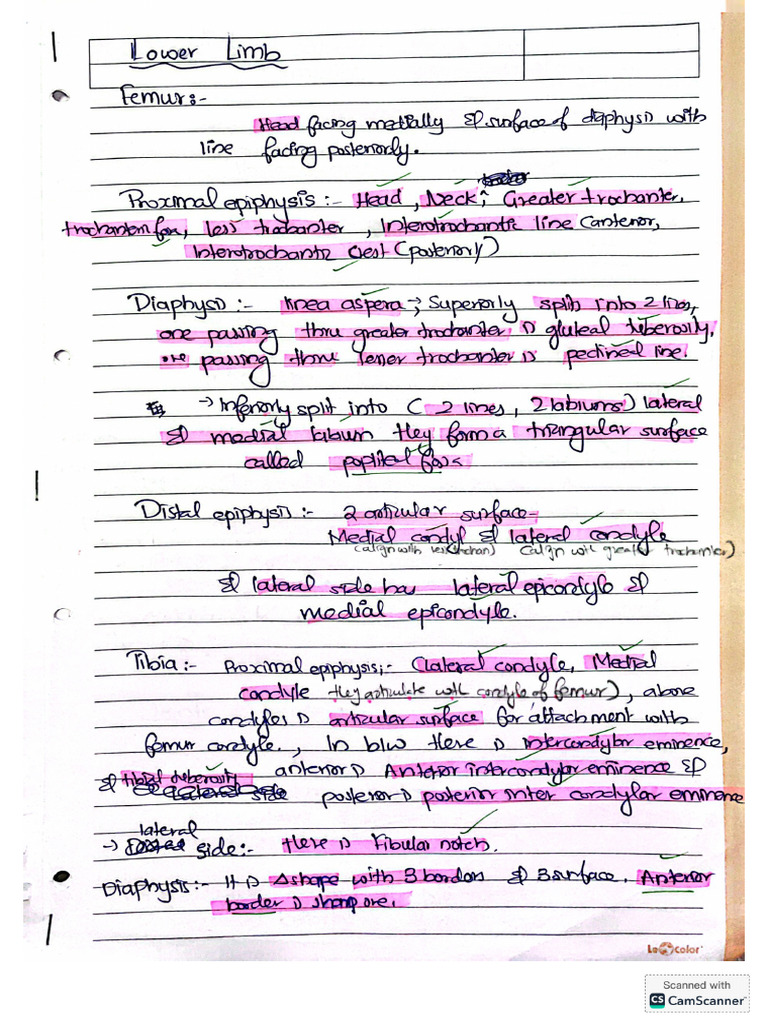 Lower Limb
Femur:-
Head facing medially & surface of diaphysis with
line facing posteriorly.
Proximal epiphysis:- Head, Neck, Greater trochanter,
less trochanter, Intertrochantic line (anterior,
Intertrochantic crest (posteriorly)
Diaphysis:- linea aspera → Superiorly split into 2 lines,
one passing thru greater trochanter is gluteal tuberosity.
one passing thru lesser trochanter is pectineal line.
→ Inferiorly split into ( 2 lines, 2 labiums) lateral
& medial labium they form a triangular surface
called popliteal fossa
Distal epiphysis:- 2 articular surface-
Medial condyl & lateral condyle
(align with less trochan) (align with great trochanter)
& lateral side has lateral epicondyle &
medial epicondyle.
Tibia:- Proximal epiphysis;- (lateral condyle, Medial
condyle they articulate with condyle of femur), above
condyles is articular surface for attachment with
femur condyle., In b/w there is intercondylar eminence,
anterior is Anterior intercondylar eminence &
& tibial tuberosity
side posterior is posterior inter condylar eminence
lateral
→ side:- there is Fibular notch.
Diaphysis:- It is Δshape with 3 borders & 3 surface. Anterior
border is sharp one.
Le color
Scanned with
CS CamScanner